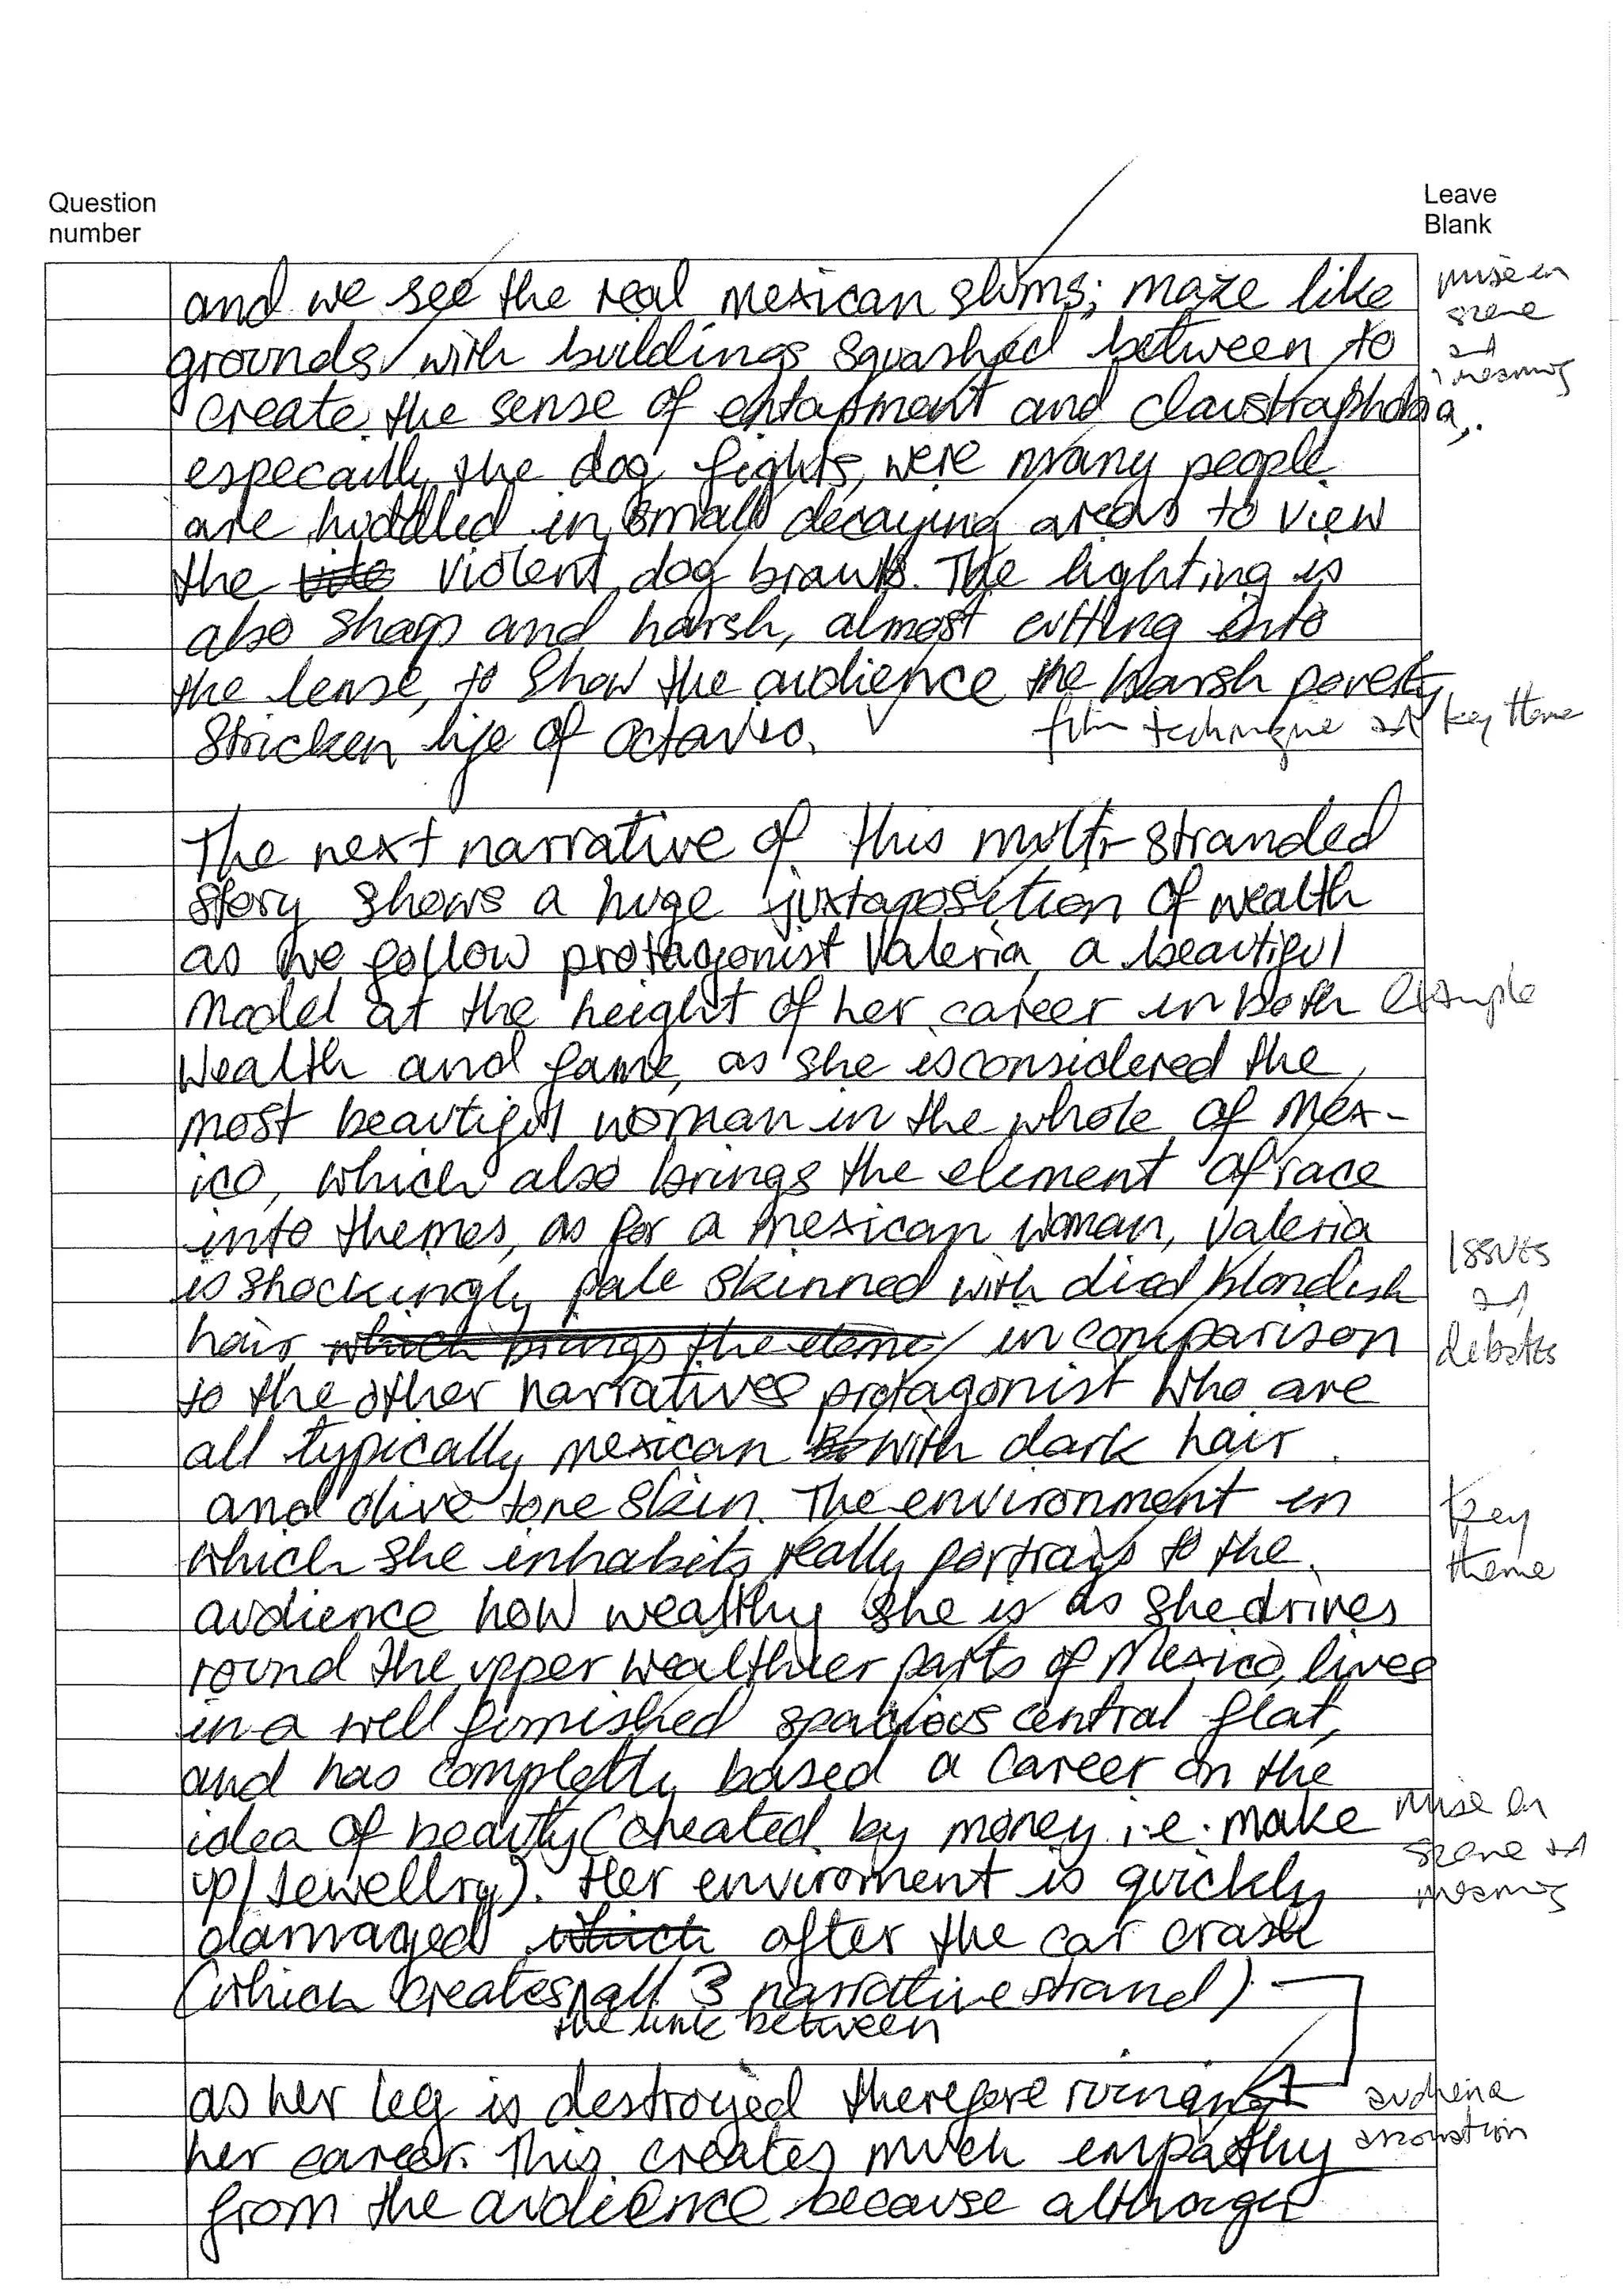 Question
number
Leave
Blank
and we see the real mexican slums; maze like
mise en
scene
and
meaning
grounds with buildings squashed between to
create the sense of entapment and claustraphobia,.
especailly the dog fights, were many people
are huddled in small decaying areas to view
the violent dog brawls. The lighting is
also sharp and harsh, almost cutting into
the lense, to show the audience the harsh poverty
stricken life of Octavio.
film technique and key theme
The next narrative of this multi-stranded
story shows a huge juxtaposition of wealth
as we follow protagonist Valeria, a beautiful
model at the height of her career in both
Example
wealth and fame, as she is considered the
most beautiful woman in the whole of Mex-
ico, which also brings the element of race
into themes, as for a mexican woman, Valeria
is shockingly pale skinned with died blondish
Issues
and
debates
hair which brings the eleme in comparison
to the other narratives protagonist who are
all typically mexican with dark hair
and olive tone skin. The environment in
which she inhabits really portrays to the
key
theme
audience how wealthy she is as she drives
round the upper wealthier parts of Mexico, lives
in a well furnished spacious central flat,
and has completly based a career on the
idea of beauty (created by money i.e. make
up/jewellry). Her enviroment is quickly
mise en
scene and
meaning
damaged which after the car crash
(which creates all 3 narrative strand).
the link between
as her leg is destroyed therefore ruining
her career. This creates much empathy
audience
from the audience because although